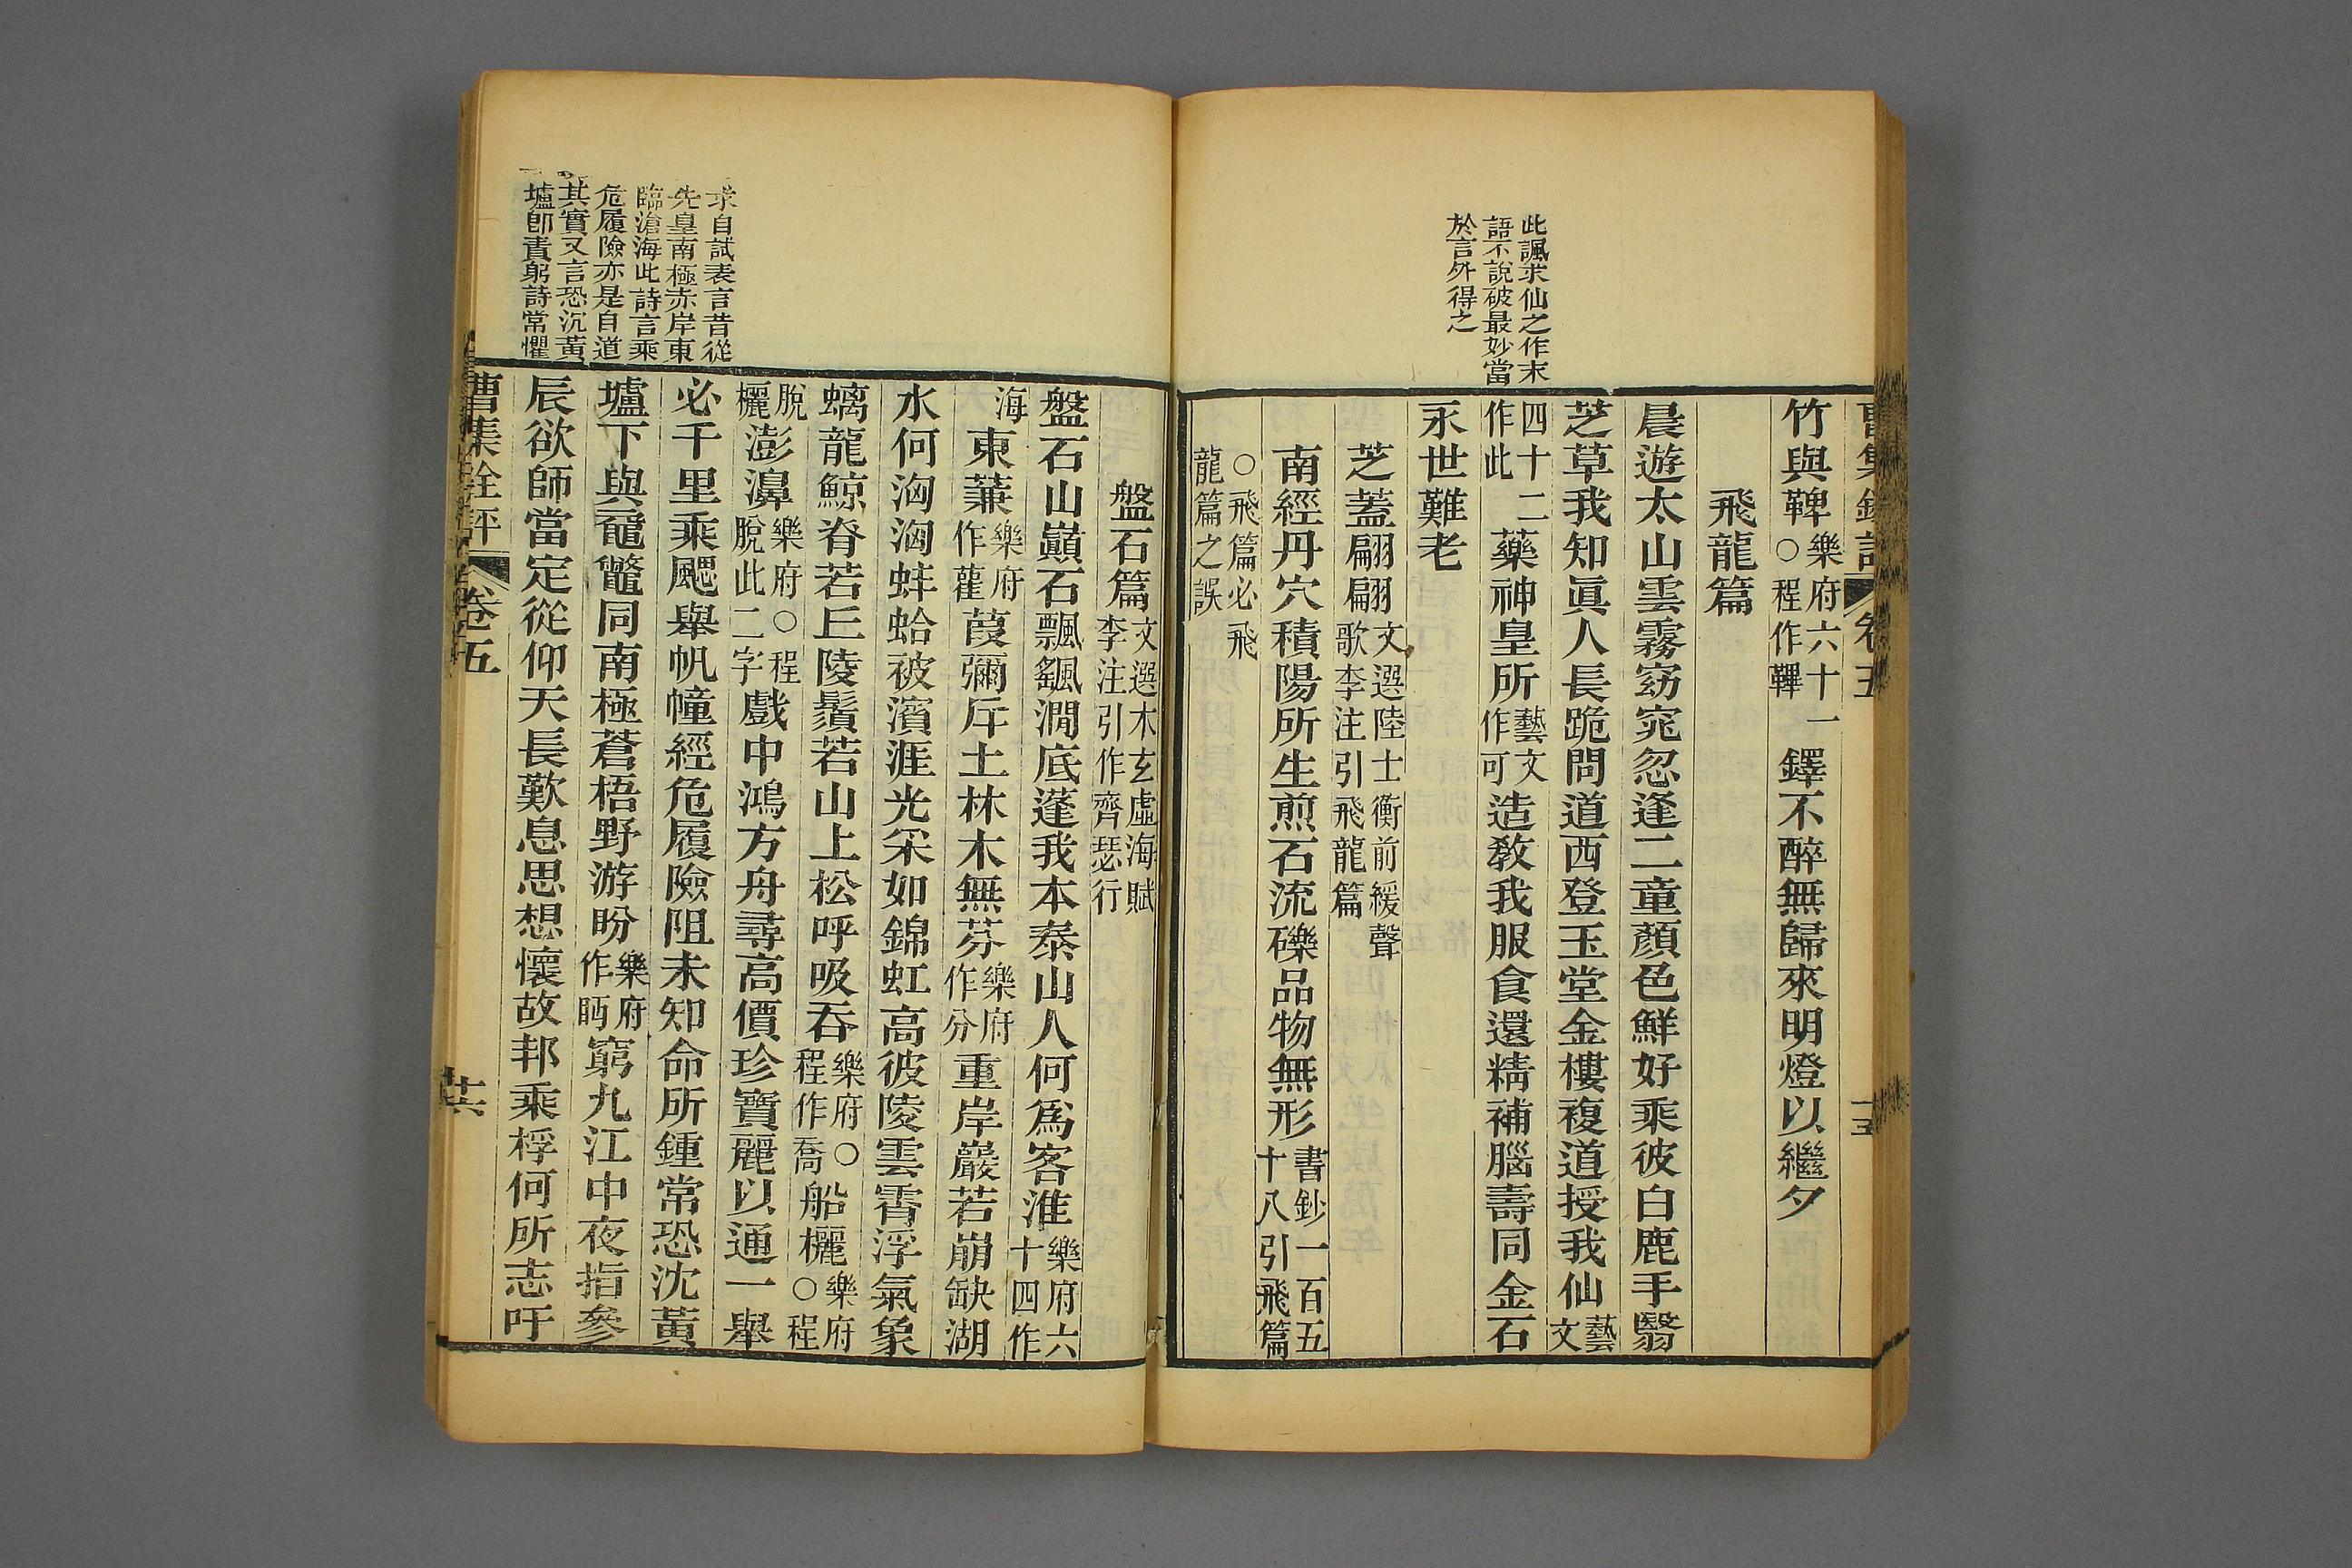 曹集銓評 卷五 十五
此諷求仙之作末
語不說破最妙當
於言外得之
竹與鞞樂府六十一○程作鞸鐸不醉無歸來明燈以繼夕
飛龍篇
晨遊太山雲霧窈窕忽逢二童顏色鮮好乘彼白鹿手翳
芝草我知眞人長跪問道西登玉堂金樓複道授我仙藝文
四十二作此藥神皇所藝文作可造敎我服食還精補腦壽同金石
永世難老
芝蓋翩翩文選陸士衡前緩聲歌李注引飛龍篇
南經丹穴積陽所生煎石流礫品物無形書鈔一百五十八引飛篇
○飛篇必飛龍篇之誤
求自試表言昔從
先皇南極赤岸東
臨滄海此詩言乘
危履險亦是自道
其實又言恐沉黃
壚卽責躬詩常懼
盤石篇文選木玄虛海賦李注引作齊瑟行
盤石山巔石飄颻澗底蓬我本泰山人何爲客淮樂府六十四作
海東蒹樂府作雚葭彌斥土林木無芬樂府作分重岸巖若崩缺湖
水何洶洶蚌蛤被濱涯光采如錦虹高彼陵雲霄浮氣象
螭龍鯨脊若丘陵鬚若山上松呼吸吞樂府○程作喬船欐樂府○程
脫欐澎濞樂府○程脫此二字戲中鴻方舟尋高價珍寶麗以通一舉
必千里乘颸舉帆幢經危履險阻未知命所鍾常恐沈黃
壚下與黿鼈同南極蒼梧野游盼樂府作眄窮九江中夜指參
辰欲師當定從仰天長歎息思想懷故邦乘桴何所志吁
曹集銓評 卷五 十六